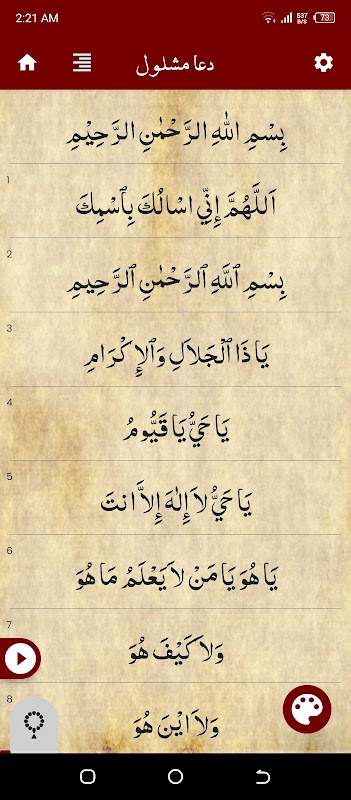 2:21 AM 537 B/S 73
دعا مشلول
بِسْمِ اللهِ الرَّحْمٰنِ الرَّحِيْمِ
1
اَللَّهُمَّ إِنِّي اسْالُكَ بِٱسْمِكَ
2
بِسْمِ ٱللَّهِ ٱلرَّحْمٰنِ ٱلرَّحِيمِ
3
يَا ذَا ٱلْجَلاَلِ وَٱلإِكْرَامِ
4
يَا حَيُّ يَا قَيُّومُ
5
يَا حَيُّ لاَ إِلٰهَ إِلاَّ انتَ
6
يَا هُوَ يَا مَنْ لاَ يَعْلَمُ مَا هُوَ
7
وَلاَ كَيْفَ هُوَ
8
وَلاَ ايْنَ هُوَ